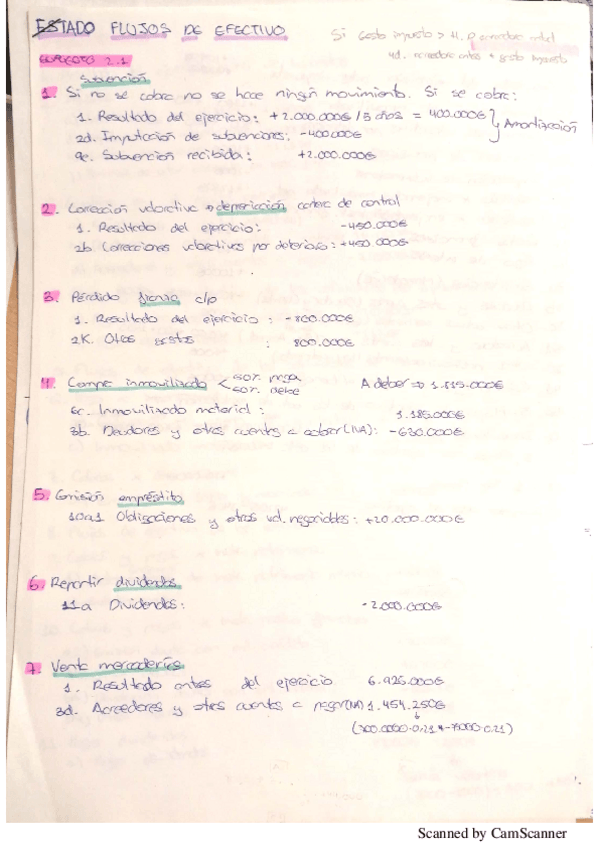 ESTADO FLUJOS DE EFECTIVO
Si Gasto impuesto >
4d. acreedores antes + gasto impuesto
SUPUESTO 2.1
Subvención
1. Si no se cobra no se hace ningún movimiento. Si se cobra:
1. Resultado del ejercicio: +2.000.000€ /5 años = 400.000€ } Amortización
2d. Imputación de subvenciones: -400.000€
9e. Subvención recibida: +2.000.000€
2. Corrección valorativa → depreciación cartera de control
1. Resultado del ejercicio: -450.000€
2b. Correcciones valorativas por deterioro: +450.000€
3. Pérdida fianza c/p
1. Resultado del ejercicio: -800.000€
2K. Otros gastos : 800.000€
4. Compra inmovilizado < 50%
50% debe
A deber => 1.815.000€
6c. Inmovilizado material: 1.185.000€
3b. Deudores y otras cuentas a cobrar (IVA): -630.000€
5. Emisión empréstito
10a1 Obligaciones y otros val. negociables: +20.000.000€
6. Repartir dividendos
11a Dividendos: -2.000.000€
7. Venta mercaderías
1. Resultado antes del ejercicio 6.925.000€
3d. Acreedores y otras cuentas a pagar (IVA) 1.454.250€
Scanned by CamScanner